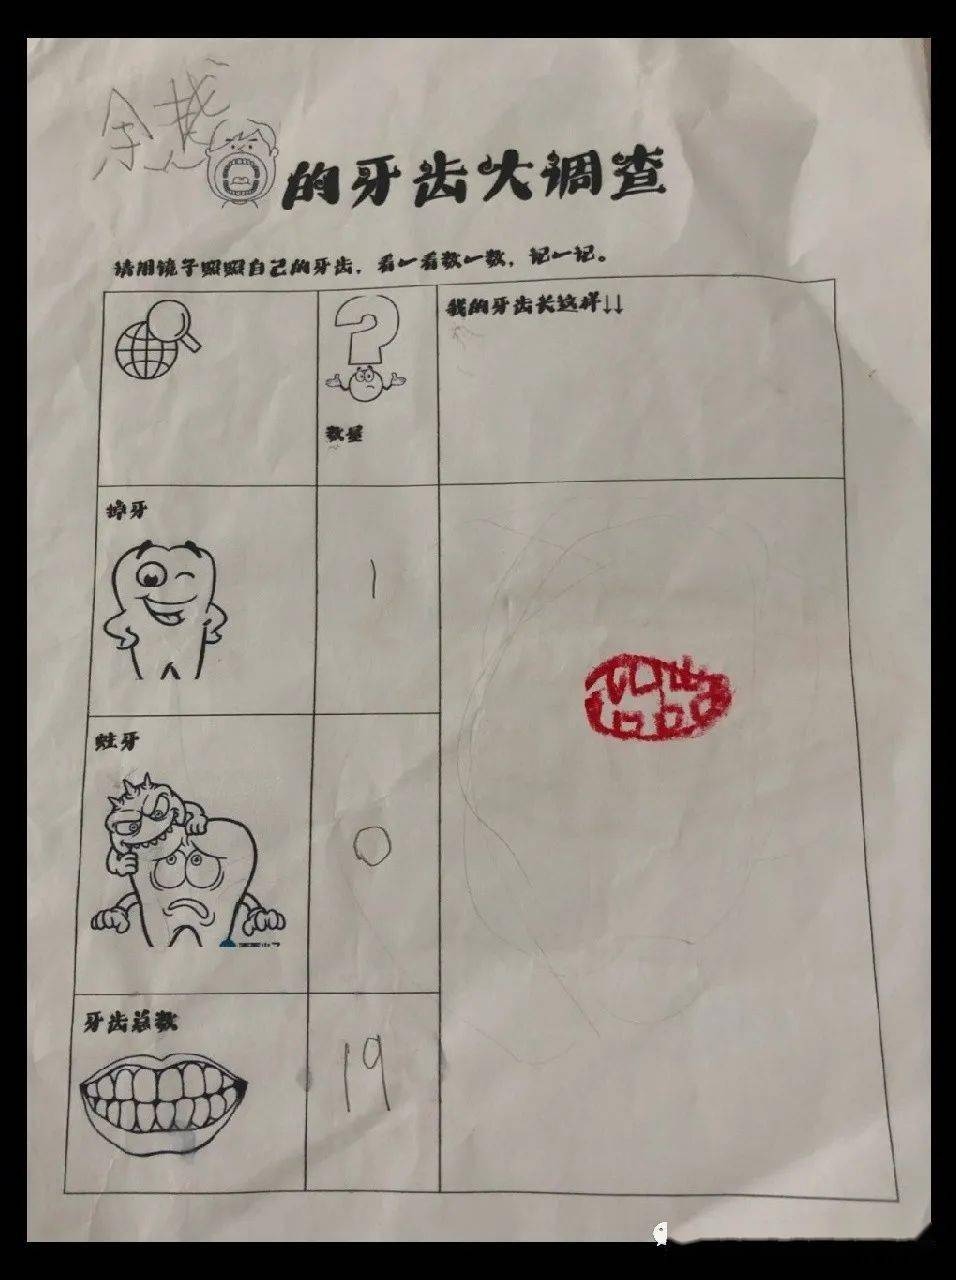 余
的牙齿大调查
请用镜子照照自己的牙齿，看一看数一数，记一记。
数量
我的牙齿长这样↓↓
掉牙
1
蛀牙
0
牙齿总数
19